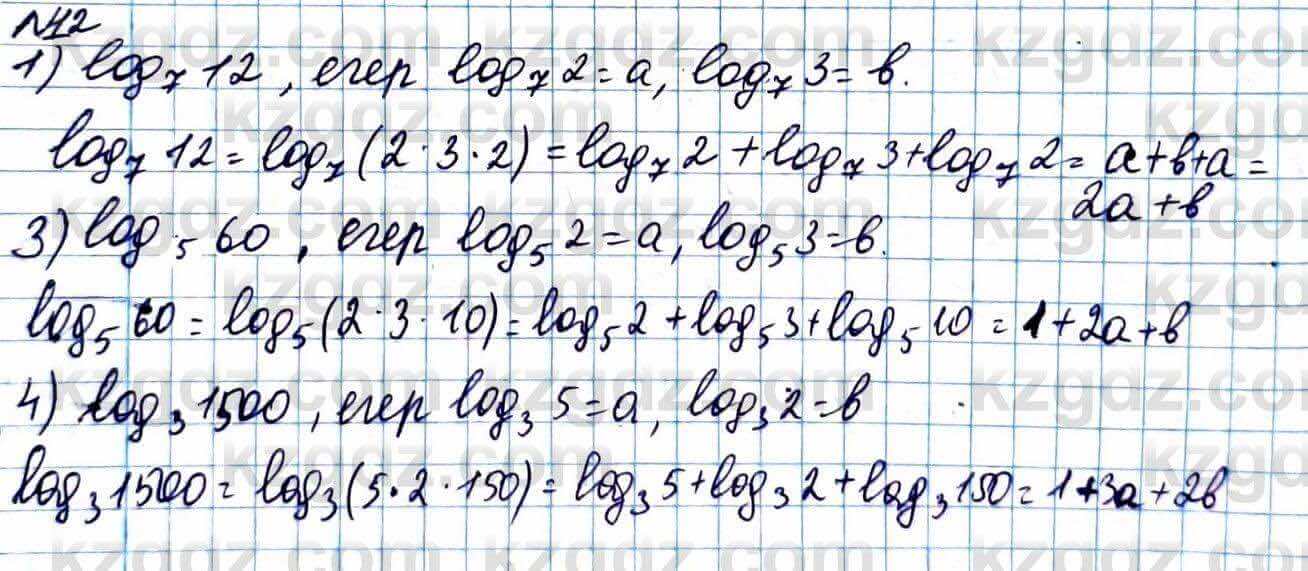 №42
1) log₇ 12 , егер log₇ 2 = a, log₇ 3 = b.
log₇ 12 = log₇ (2 · 3 · 2) = log₇ 2 + log₇ 3 + log₇ 2 = a + b + a =
2a + b
3) log₅ 60 , егер log₅ 2 = a, log₅ 3 = b.
log₅ 60 = log₅ (2 · 3 · 10) = log₅ 2 + log₅ 3 + log₅ 10 = 1 + 2a + b
4) log₃ 1500 , егер log₃ 5 = a, log₃ 2 = b
log₃ 1500 = log₃ (5 · 2 · 150) = log₃ 5 + log₃ 2 + log₃ 150 = 1 + 3a + 2b
kzgdz.com